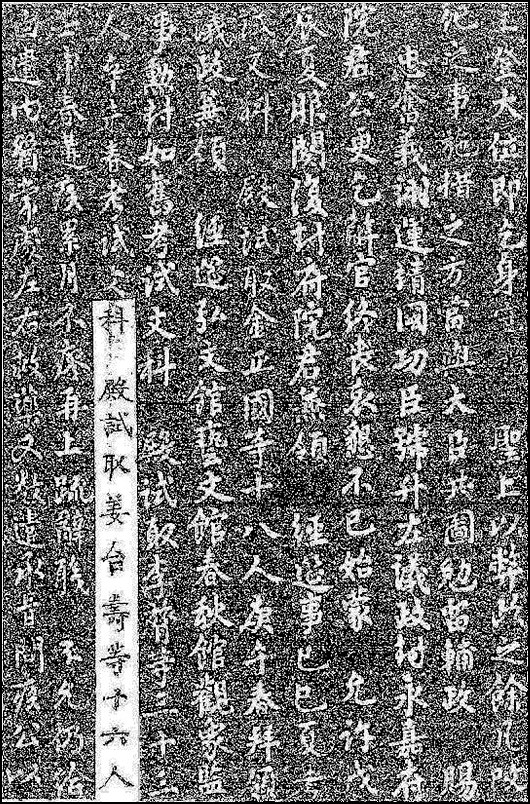 上登大位即 身 聖上以弊政之餘凡
紀之事施措之方當與大臣共圖勉留輔政 賜
忠奮義翊運靖國功臣號升左議政封永嘉府
院君公更乞解官終喪哀懇不已始蒙 允許戊
辰夏服闋復封府院君兼領 經筵事己巳夏主
試文科 殿試取金正國等十八人庚午春拜領
議政兼領 經筵弘文館藝文館春秋館觀象監
事勳封如舊考試文科 殿試取李 等三十三
人辛未春考試文科 殿試取姜台壽等十六人
春遘疾累月不瘳再上疏辭職 不允仍給
遣內醫常處左右救藥又數遣承旨問疾公以